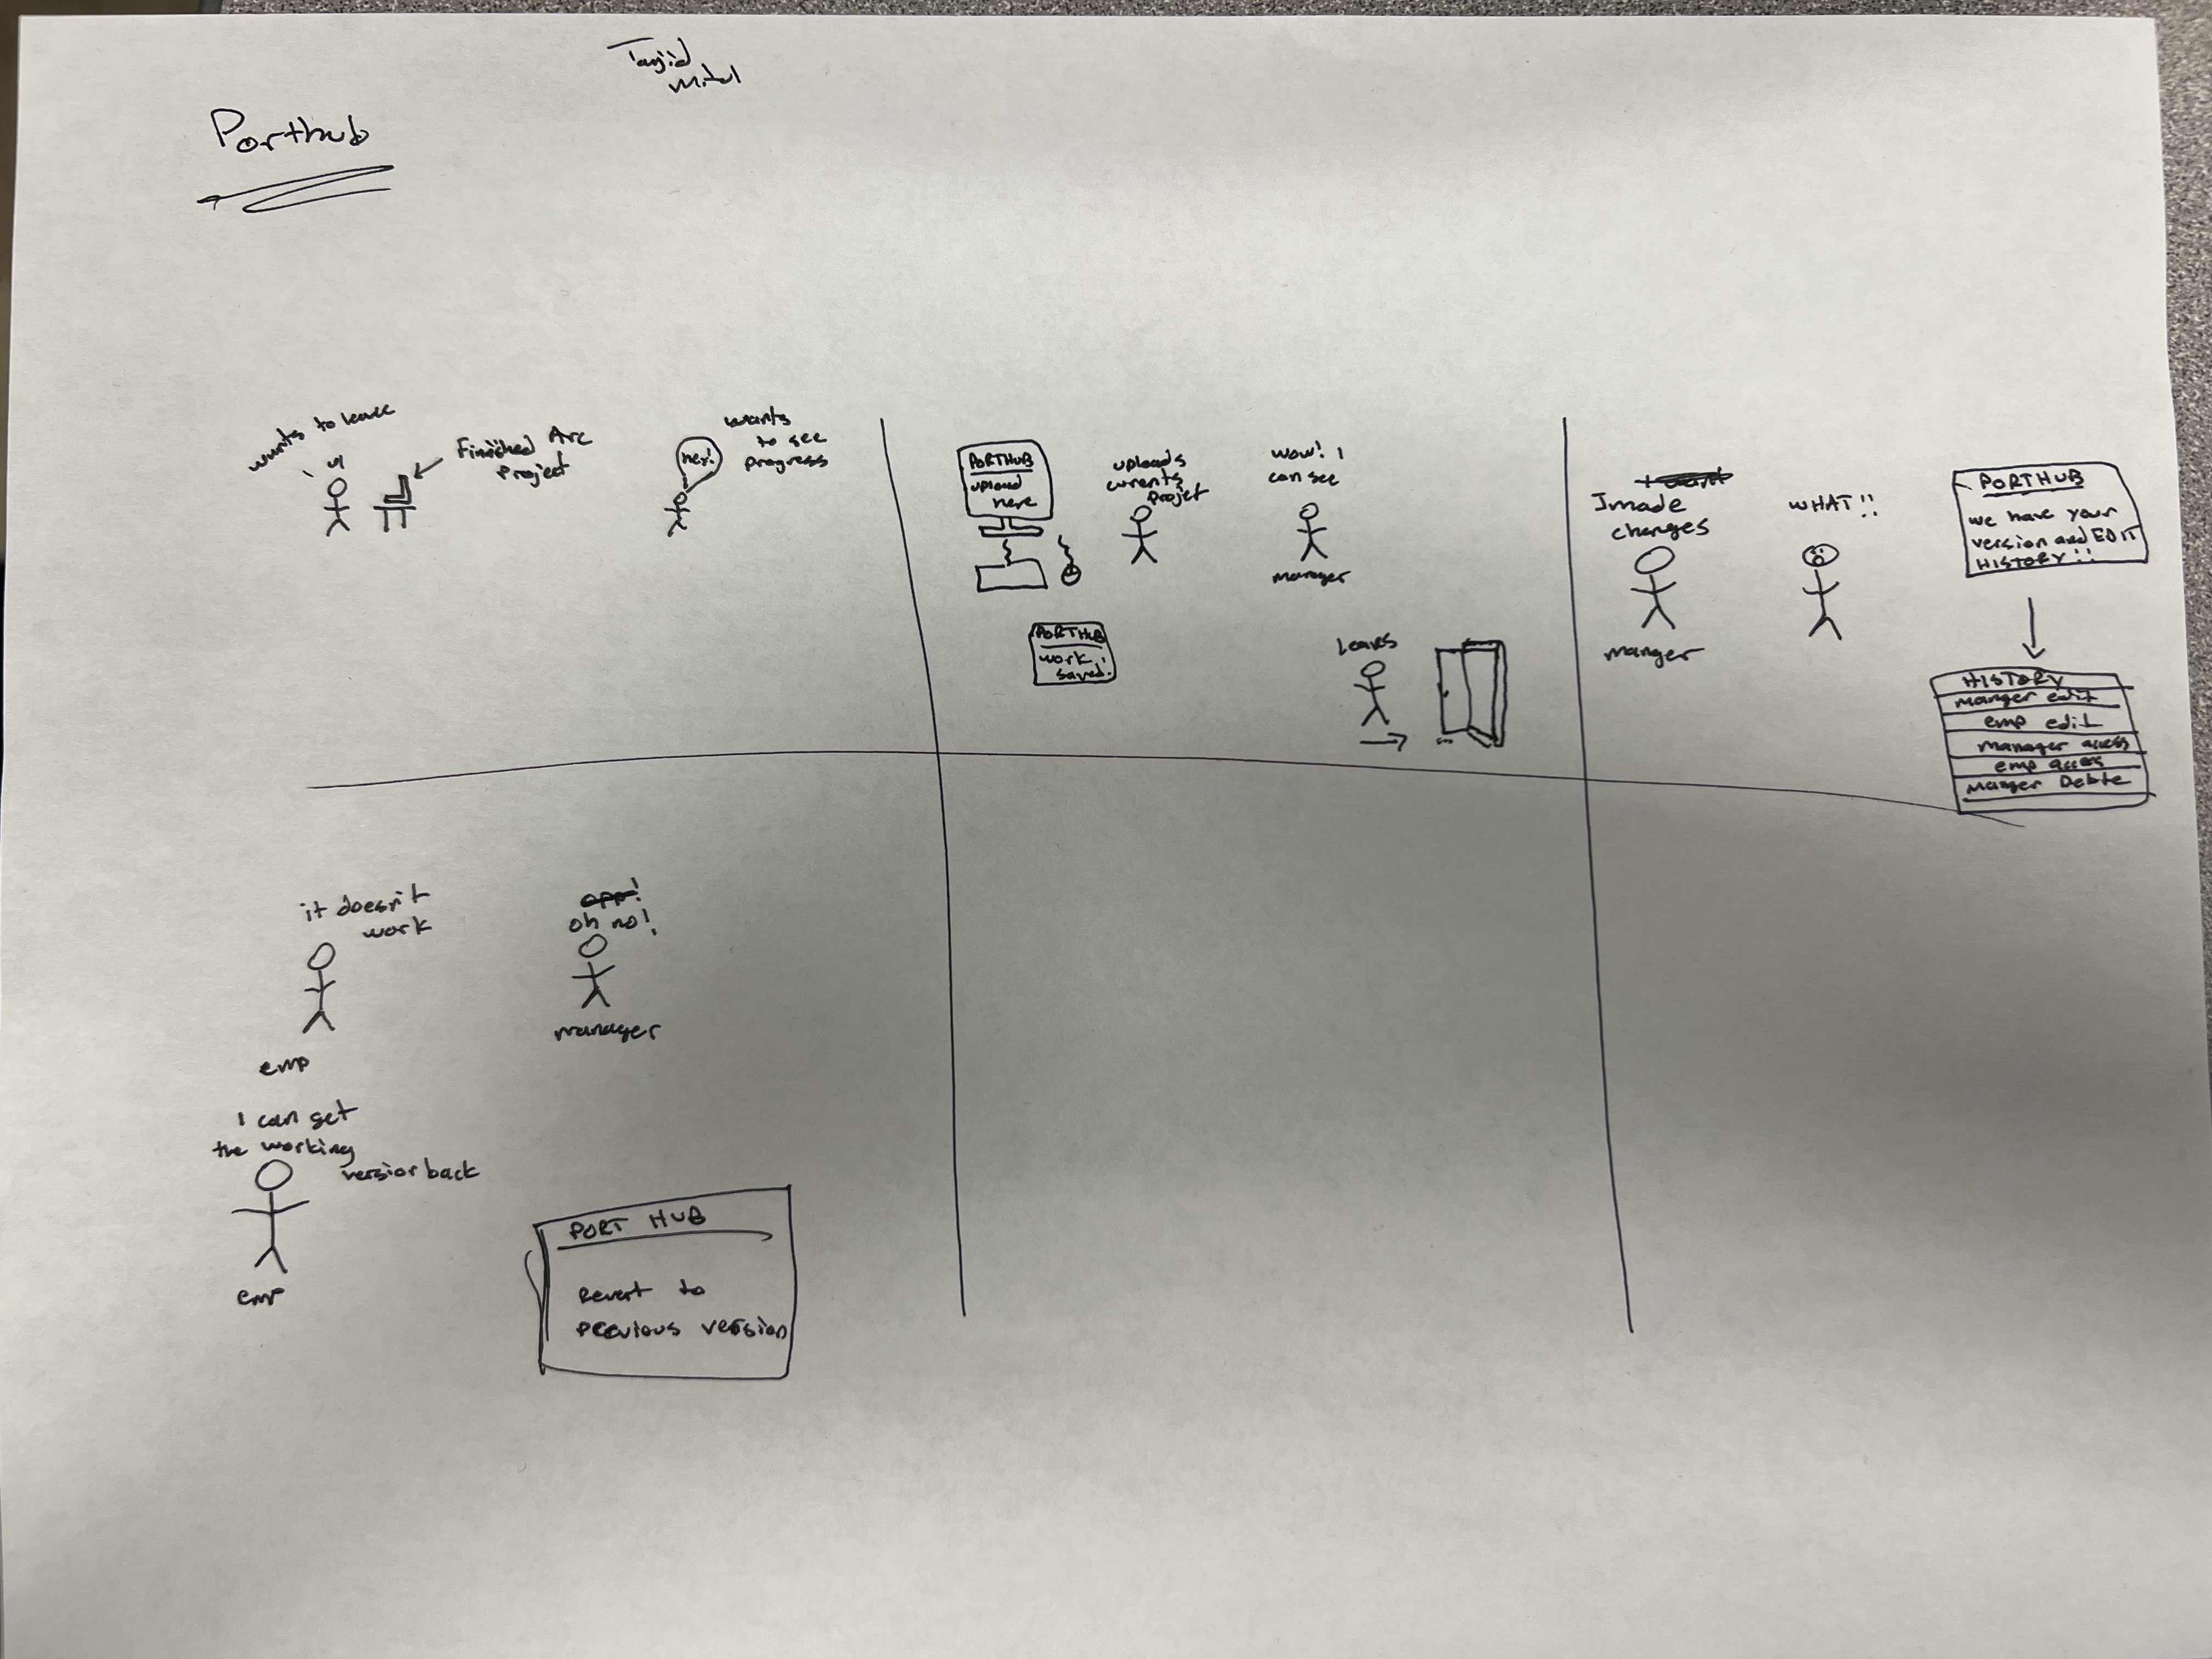 Tanjid
Mitul
Porthub
wants to leave
Finished Arc
Project
hey!
wants
to see
progress
PORTHUB
upload
here
uploads
currents
projet
wow! I
can see
manager
PORTHUB
work
saved!
leaves
I want
I made
changes
manger
WHAT!!
PORTHUB
we have your
version and EDIT
HISTORY!!
HISTORY
manger edit
emp edit
manager access
emp acces
manger Delete
it doesn't
work
emp
oh no!
manager
I can get
the working
version back
emp
PORT HUB
Revert to
previous version